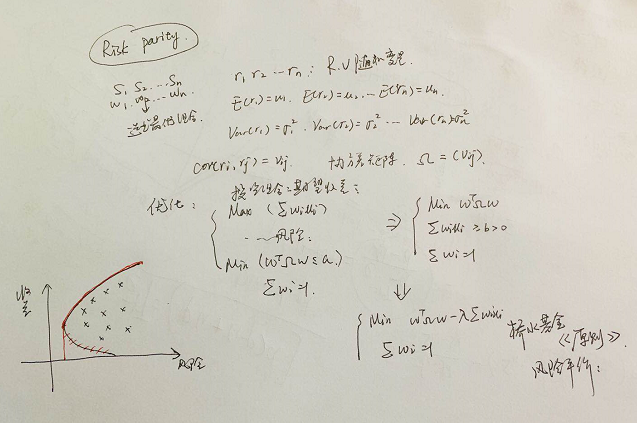 Risk parity.
S₁, S₂ ... Sₙ
w₁, w₂, ... wₙ.
r₁, r₂ ... rₙ : R.V 随机变量.
E(r₁)=u₁. E(r₂)=u₂ ... E(rₙ)=uₙ.
Var(r₁)=σ₁². Var(r₂)=σ₂² ... Var(rₙ)=σₙ²
cov(ri, rj) = Vij. 协方差矩阵. Ω = (Vij).
投资组合:期望收益:
优化:
Max (Σwiui)
风险:
Min (wᵀΩw ≤ a.)
Σwi=1.
⇒
Min wᵀΩw
Σwiui ≥ b > 0
Σwi=1
⇓
Min wᵀΩw − λΣwiui
Σwi=1
桥水基金
《原则》.
风险平价:
收益
风险